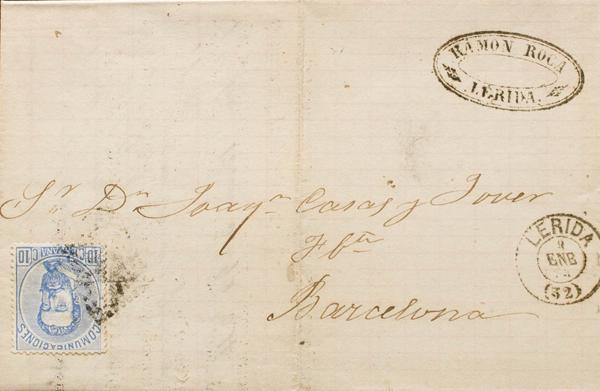 RAMON ROCA
LERIDA.
Sr. Dn. Joaqn. Casas y Jover
Barcelona
LERIDA
ENE
(32)
COMUNICACIONES
10
10